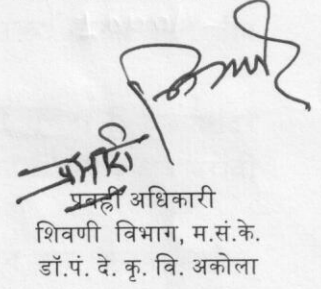 प्रवर्ह्री अधिकारी
शिवणी विभाग, म.सं.के.
डॉ.पं. दे. कृ. वि. अकोला